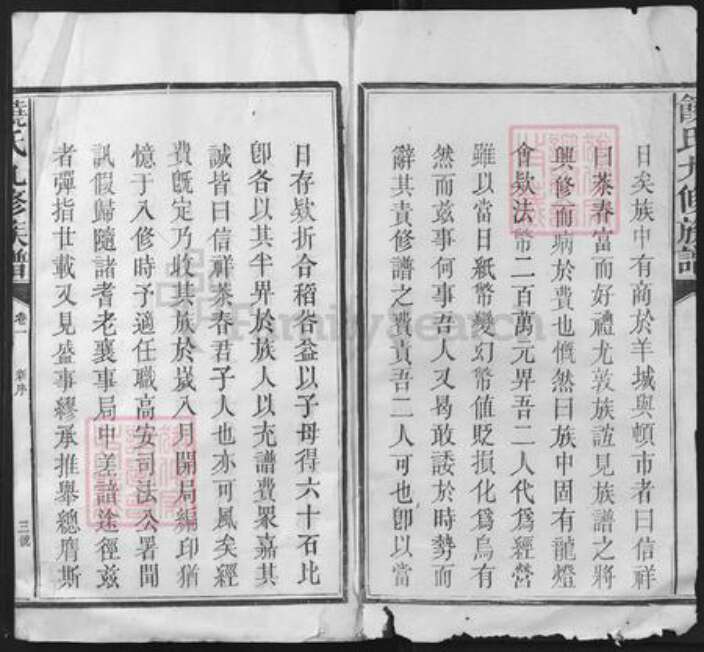 日矣族中有商於羊城與頓市者曰信祥
曰茶春富而好禮尤敦族誼見族譜之將
興修而病於費也慨然曰族中固有龍燈
會欵法幣二百萬元畀吾二人代爲經營
雖以當日紙幣變幻幣值貶損化爲烏有
然而茲事何事吾人又曷敢諉於時勢而
辭其責修譜之費責吾二人可也卽以當
日存欵折合稻谷益以子母得六十石比
卽各以其半畀於族人以充譜費眾嘉其
誠皆曰信祥茶春君子人也亦可風矣經
費旣定乃收其族於嵗八月開局編印猶
憶于八修時予適任職高安司法公署聞
訊假歸隨諸耆老襄事局中差諳途徑茲
者彈指廿載又見盛事繆承推舉總膺斯
饒氏九修族譜
卷一
新序
三號
FamilySearch